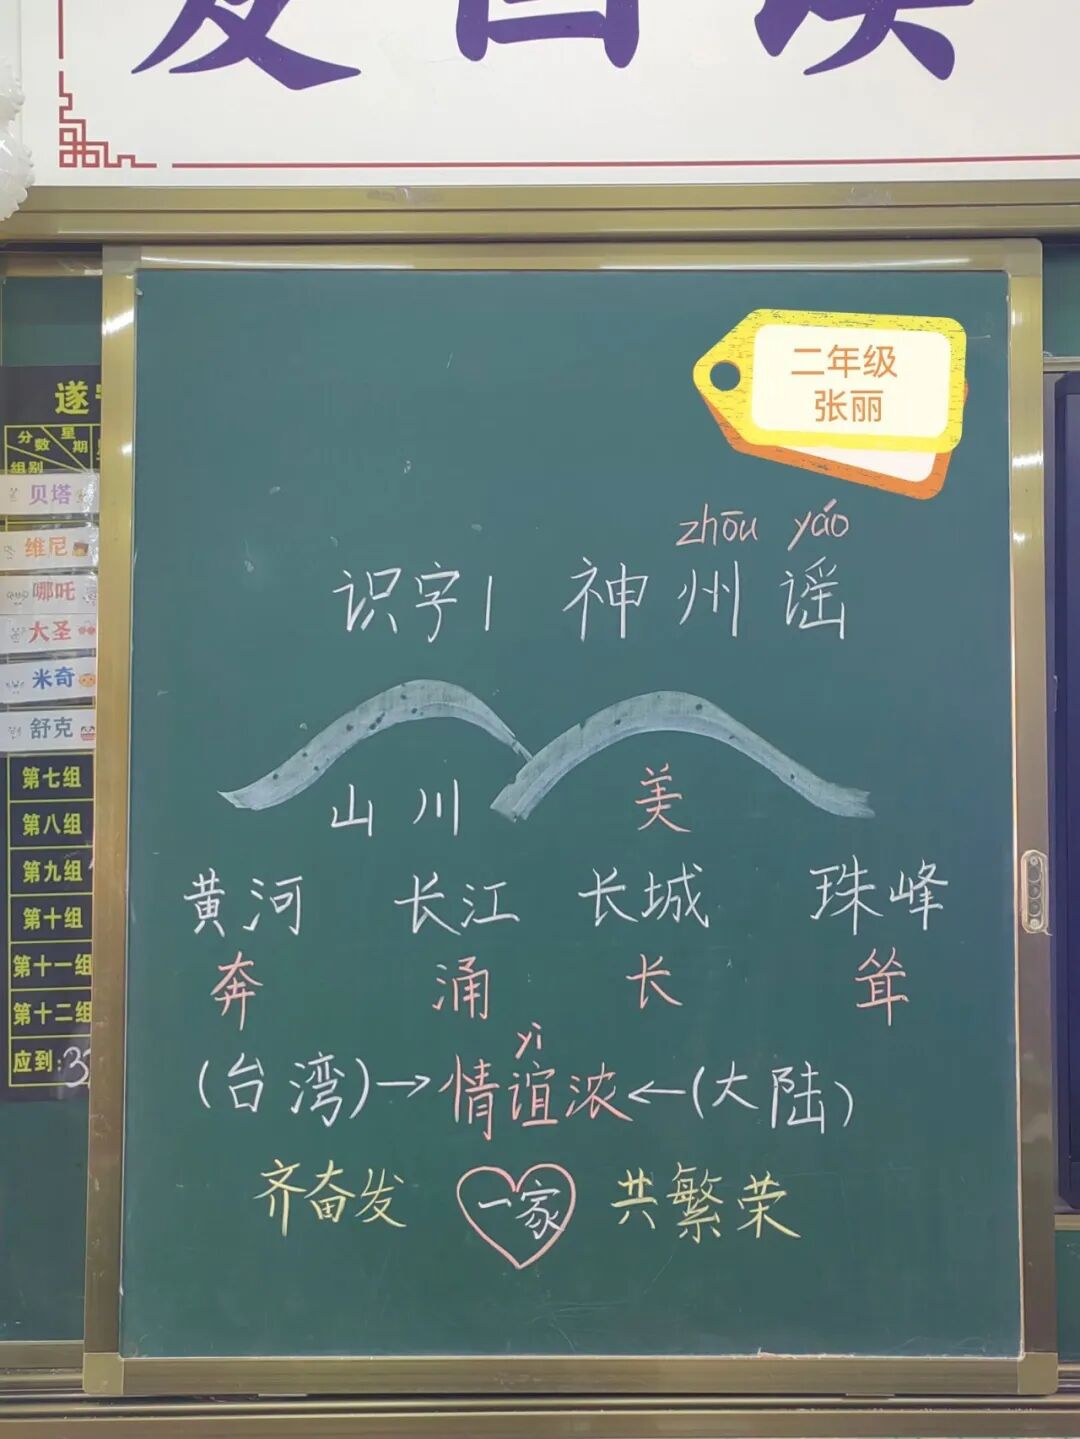 爱国读
二年级
张丽
zhōu yáo
识字1 神州谣
山川 美
黄河 长江 长城 珠峰
奔 涌 长 耸
yì
(台湾)→情谊浓←(大陆)
齐奋发 一家 共繁荣
遂
分数 星期
组别
贝塔
维尼
哪吒
大圣
米奇
舒克
第七组
第八组
第九组
第十组
第十一组
第十二组
应到: